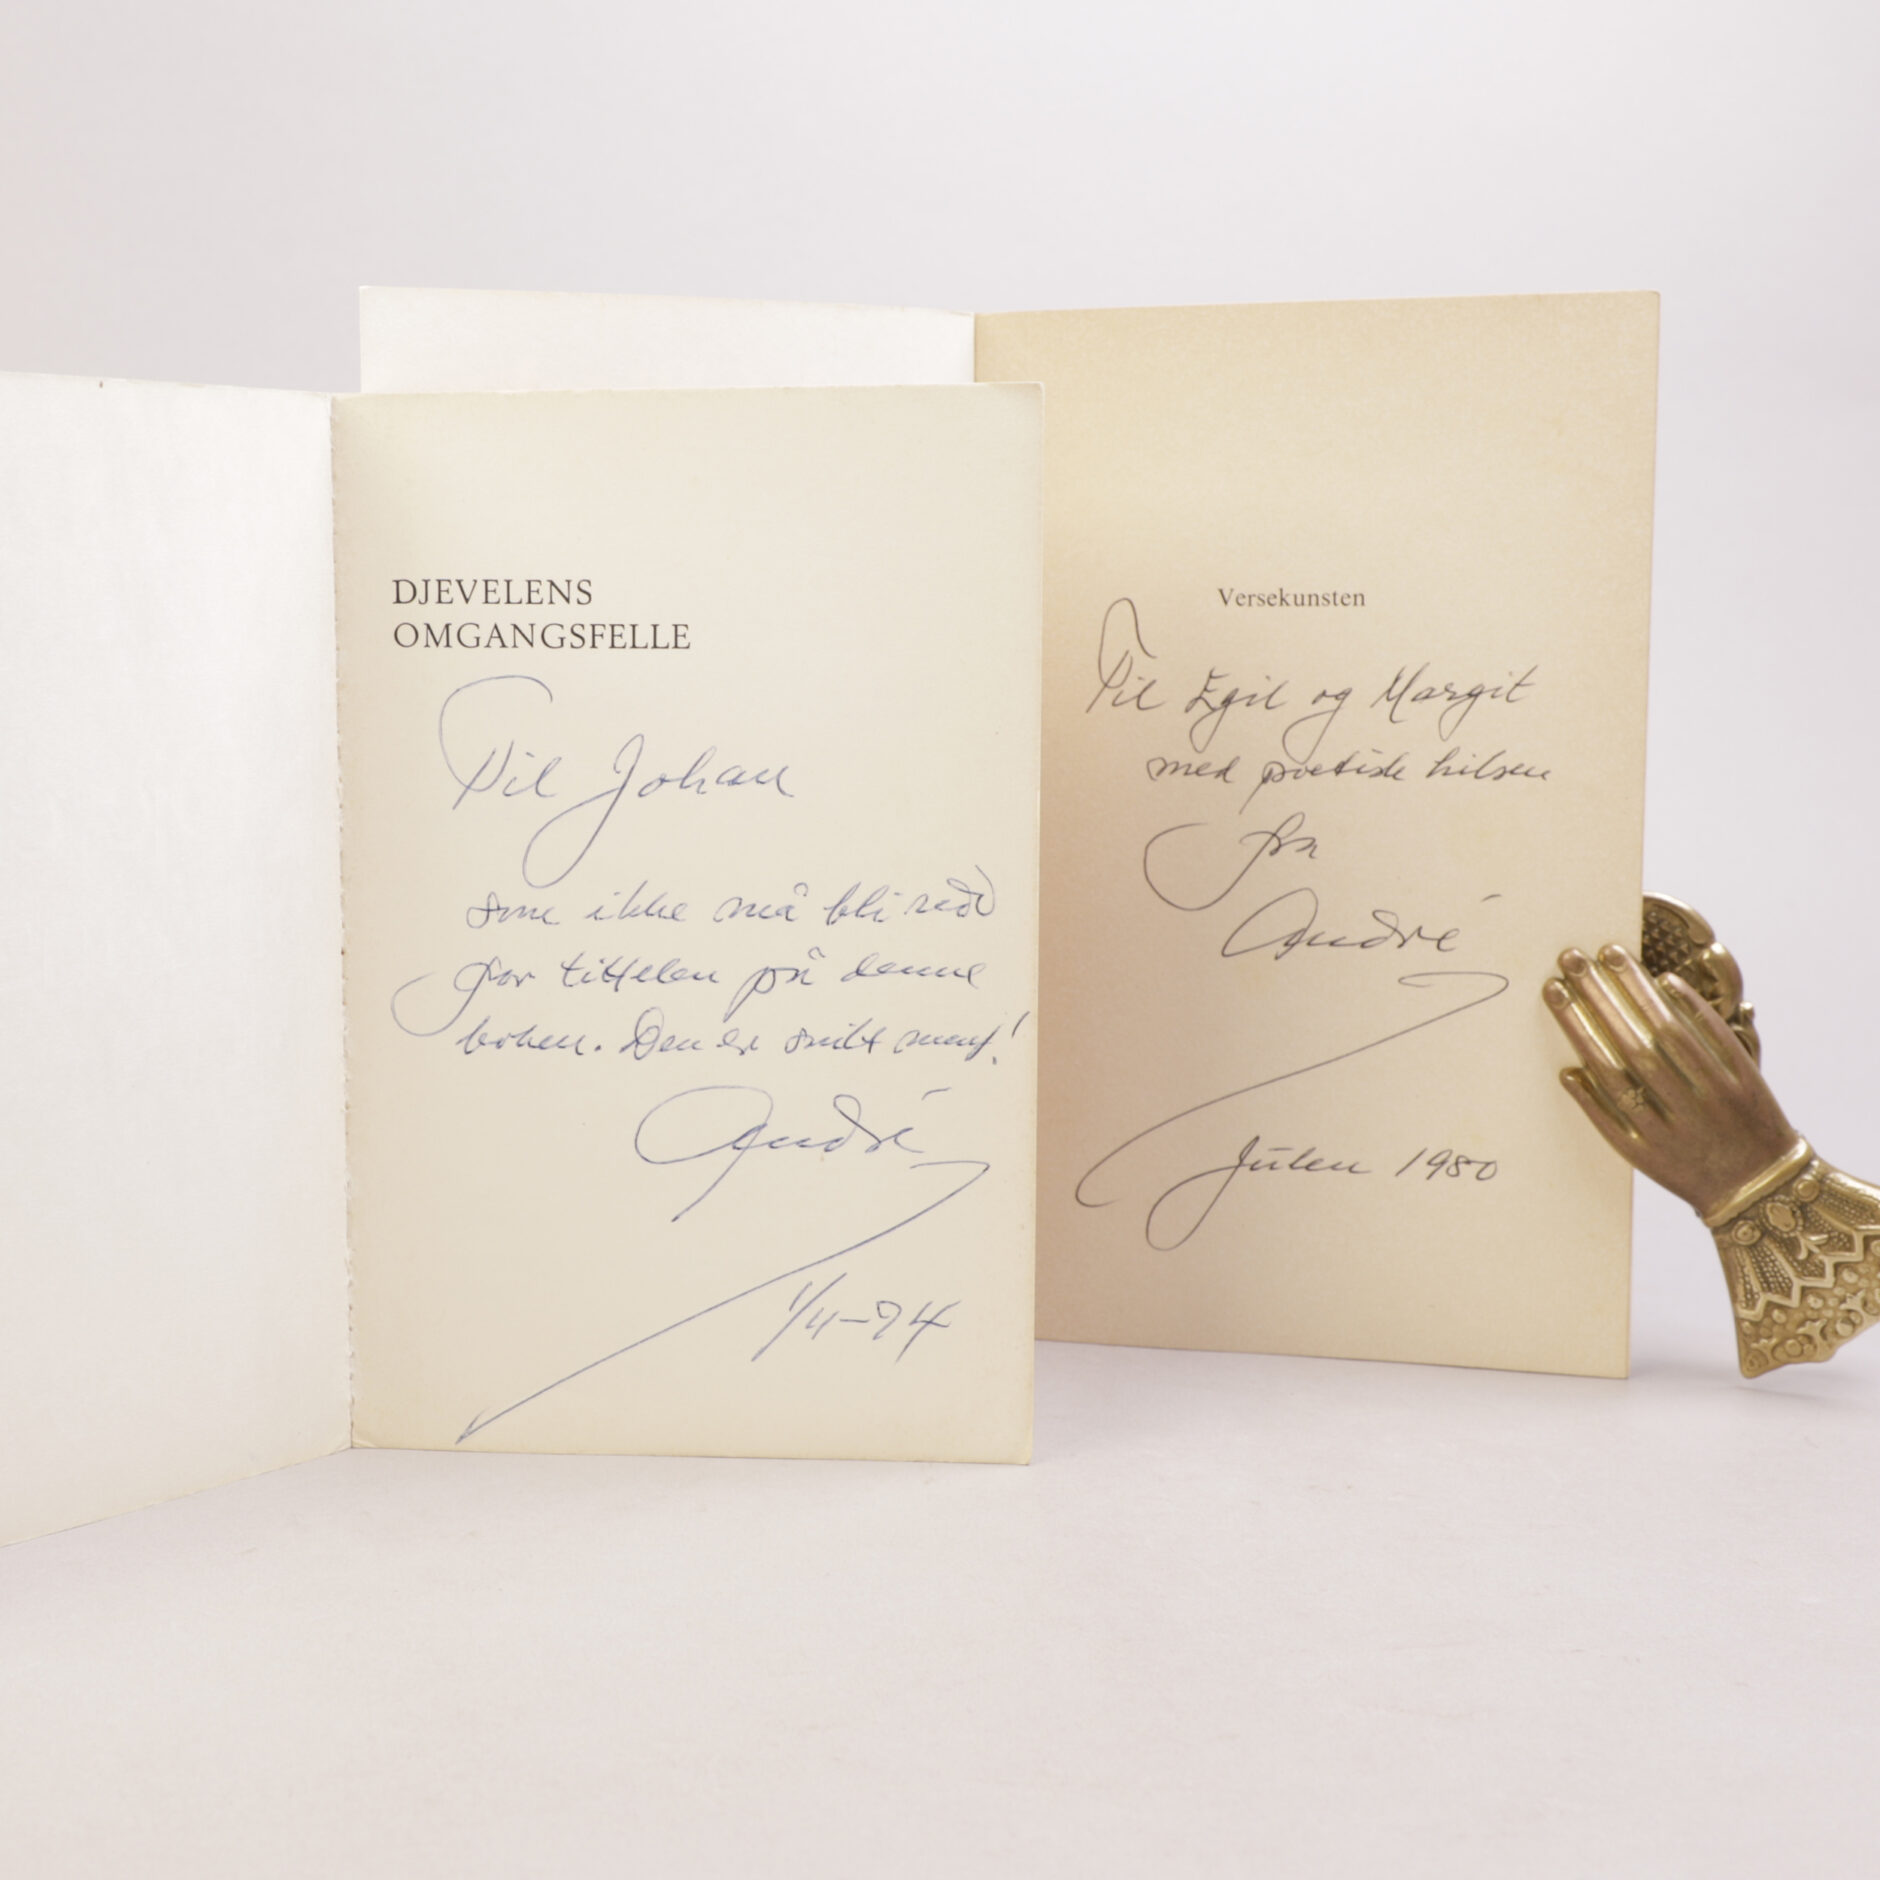 DJEVELENS
OMGANGSFELLE
Til Johan
som ikke må bli redd
for tittelen på denne
boken. Den er snilt ment!
André
1/11-74
Versekunsten
Til Egil og Margit
med poetisk hilsen
fra
André
Julen 1980